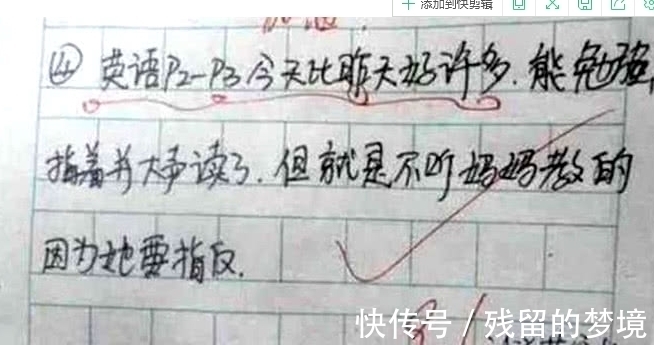 添加到快剪辑
④ 英语P2-P3今天比昨天好许多.能勉强,
指着并大声读了.但就是不听妈妈教的
因为她要指反.
快传号 / 残留的梦境